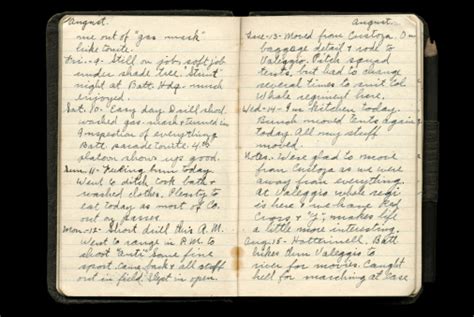 August.
me out of "gas mask"
hike tonite.
Fri-9- Still on job, soft job
under shade tree. "Stunt"
night at Batt Hdq. much
enjoyed.
Sat. 10- Easy day Drill short
washed gas-mask & turned in
Inspection of everything
Batt parade tonite. 4th
platoon shows up good.
Sun. 11- Feeling bum today.
Went to ditch took bath &
washed clothes. Plenty to
eat today as most of Co.
out on passes
Mon-12- Short drill this A.M.
Went to range in P.M. to
shoot "Anti" Some fine
sport. Came back & all stuff
out in field. Slept in open.
August.
Tues-13- Moved from Custoza. On
baggage detail & rode to
Valeggio. Pitch squad
tents, but had to change
several times to suit Col.
Whole regiment here.
Wed-14- In Kitchen today.
Bunch moved tents again
today All my stuff
moved.
Notes- Were glad to move
from Custoza as we were
away from everything.
At Valeggio whole regi
is here & we have Red
Cross & "Y", makes life
a little more interesting.
Aug. 15- Hot
Batt
hikes
Valeggio to
river for movies. Caught
hell for marching at ease